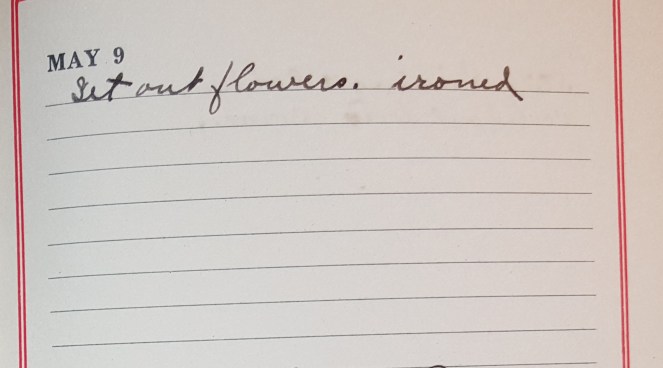 MAY 9
Set out flowers. ironed